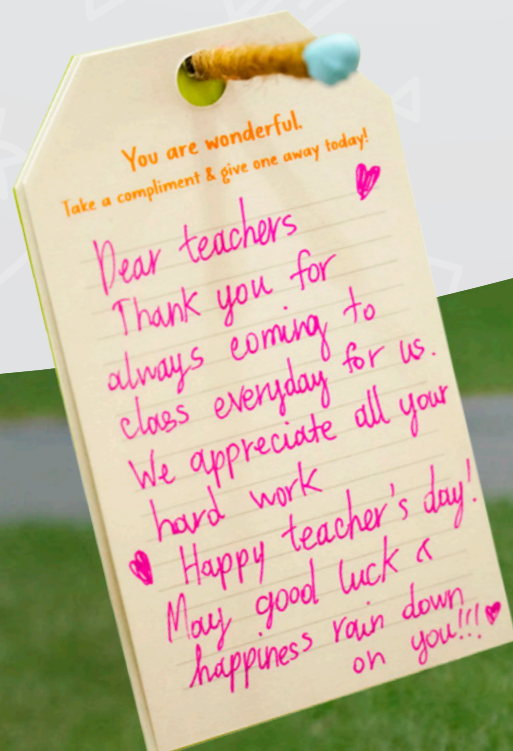 You are wonderful.
Take a compliment & give one away today!
Dear teachers
Thank you for
always coming to
class everyday for us.
We appreciate all your
hard work
Happy teacher's day!
May good luck &
happiness rain down
on you!!!